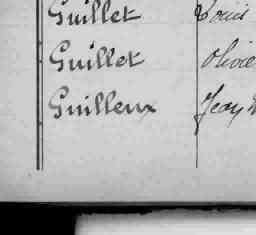 Guillet Louis
Guillet Olivie
Guilleux Jean